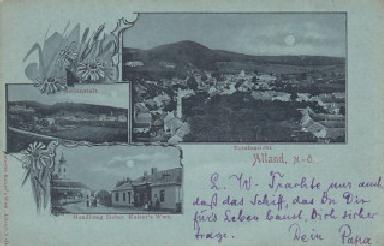 Heilanstalt.
Totalansicht
Alland, N-Ö.
Handlung Sieber. Kaiser's Wwe.
L. W. Trachte nur auch
daß das Schiff, das Du Dir
fürs Leben baust, Dich sicher
trage. Dein Papa